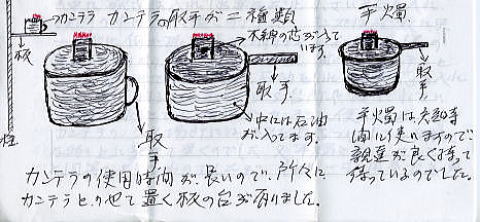 カンテラ カンテラの取手が二種類
木綿の芯が入って
います。
平燭
板
柱
取手
取手
取手
中には石油
が入ってます。
平燭は
間に使いますので
親達が良く持って
待っているのでした。
カンテラの使用時間が、長いので、所々に
カンテラとのせて置く板の台が有りました。